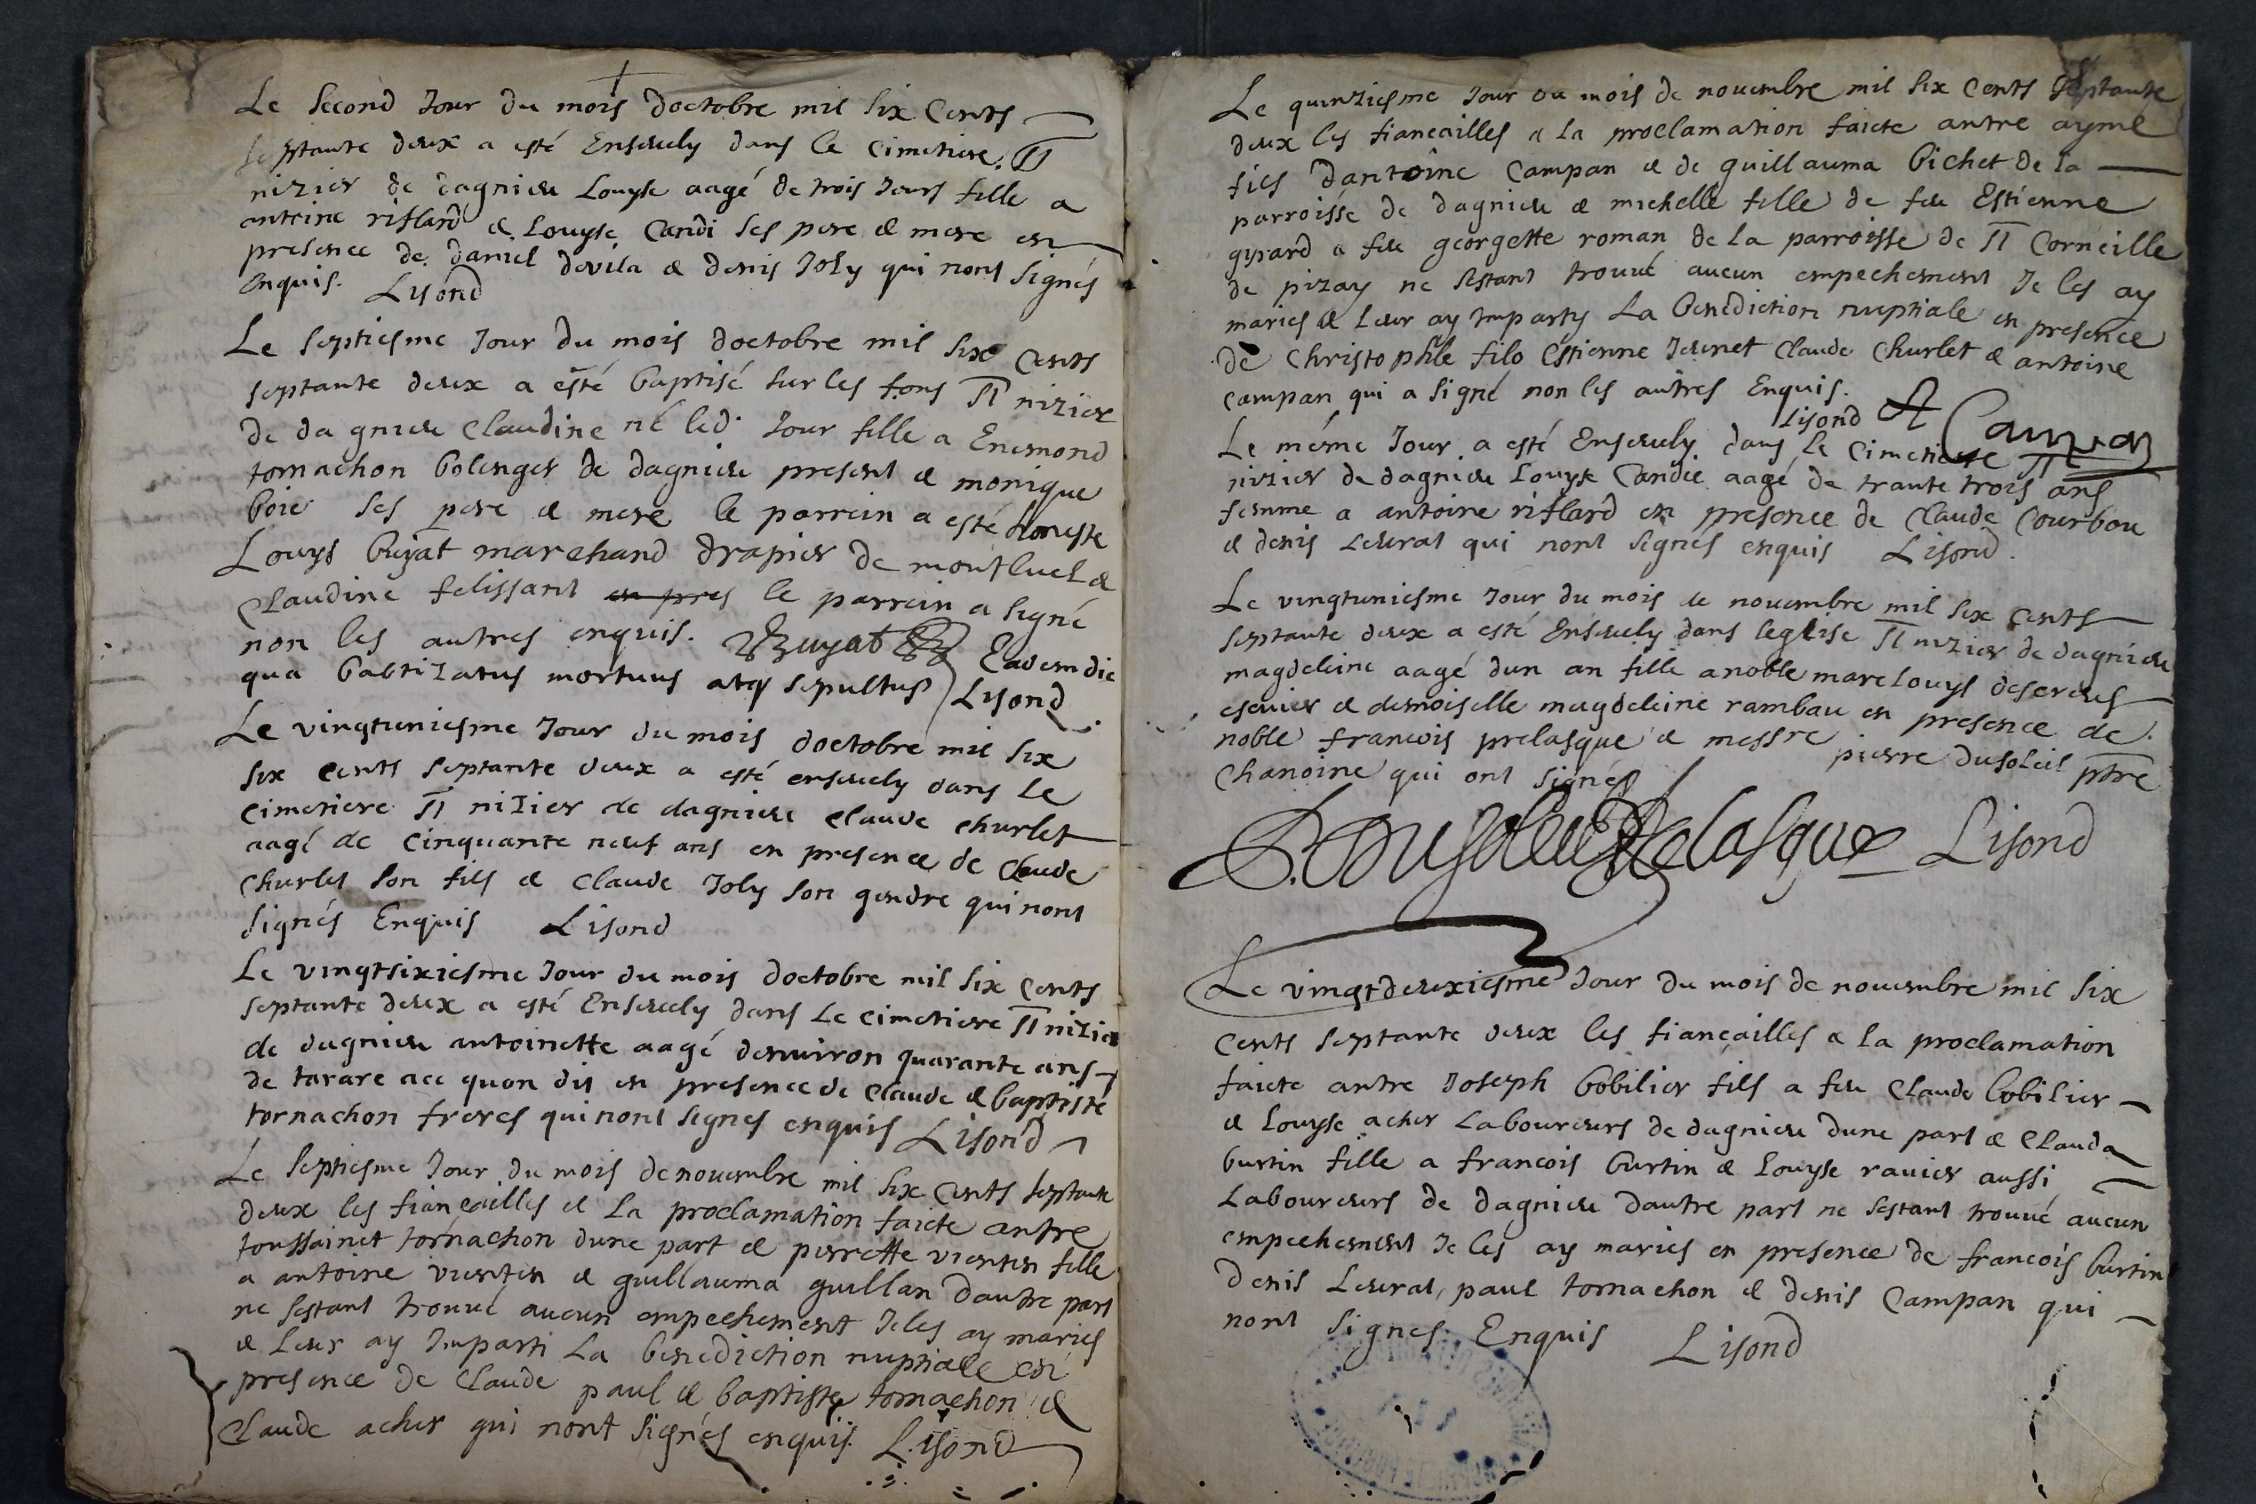 Le second Jour du mois doctobre mil six cents
septante deux a esté Ensevely dans le Cimetiere St
nizier de dagnieu Louyse aagé de trois Jours fille a
antoine riflard & Louyse Candi ses pere & mere en
presence de daniel devila & denis Joly qui nont signés
enquis. Lisond
Le septiesme Jour du mois doctobre mil six cents
septante deux a esté baptisé sur les fons St nizier
de dagnieu Claudine né led. Jour fille a Enemond
tornachon bolenger de dagnieu present & monique
boie ses pere & mere le parrein a esté honeste
Louys buyat marchand drapier de montluel &
Claudine felissant en pres le parrein a signé
non les autres enquis. Buyat Eadem die
qua babtizatus mortuus atq sepultus Lisond
Le vingtuniesme Jour du mois doctobre mil six
six cents septante deux a esté ensevely dans le
cimetiere St nizier de dagnieu Claude Churlet
aagé de cinquante neuf ans en presence de Claude
Churlet son fils & Claude Joly son gendre qui nont
signés Enquis Lisond
Le vingtsixiesme Jour du mois doctobre mil six cents
septante deux a esté Ensevely dans le cimetiere St nizier
de dagnieu antoinette aagé denviron quarante ans
de tarare ace quon dit en presence de Claude & baptiste
tornachon freres qui nont signes enquis Lisond
Le septiesme Jour du mois de novembre mil six cents septante
deux les fiançailles & la proclamation faicte antre
toussainct tornachon dune part & perrette vienten fille
a antoine vienten & guillauma guillan dautre part
ne sestant trouvé aucun empechement Je les ay mariés
& leur ay Imparti la benediction nuptiale en
presence de Claude paul & baptiste tornachon &
Claude acher qui nont signés enquis. Lisond
Le quinziesme Jour du mois de novembre mil six cents septante
deux les fiançailles & la proclamation faicte antre ayme
fils dantoine Campan & de guillauma bichet de la
parroisse de dagnieu & michelle fille de feu Estienne
gyrard & feu georgette roman de la parroisse de St Corneille
de pizay ne sestant trouvé aucun empechement Je les ay
mariés & leur ay Imparty La benediction nuptiale en presence
de Christophle filo Estienne Jevenet Claude Churlet & antoine
campan qui a signé non les autres Enquis.
Lisond A Campan
Le méme Jour a esté Ensevely dans le Cimetiere St
nizier de dagnieu Louyse Candie aagé de trante trois ans
femme a antoine riflard en presence de Claude Courbou
& denis Leurat qui nont signés enquis Lisond.
Le vingtuniesme Jour du mois de novembre mil six cents
septante deux a esté Ensevely dans leglise St nizier de dagnieu
magdeleine aagé dun an fille a noble marc louys descreus
escuier & demoiselle magdeleine rambau en presence de
noble francois prelasque & messre pierre dusoleil ptre
Chanoine qui ont signés
P. Dusoleil Prelasque Lisond
Le vingtdeuxiesme Jour du mois de novembre mil six
cents septante deux les fiançailles & la proclamation
faicte antre Joseph bobilier fils a feu Claude bobilier
& Louyse acher Laboureurs de dagnieu dune part & Clauda
burtin fille a francois burtin & Louyse ravier aussi
Laboureurs de dagnieu dautre part ne sestant trouvé aucun
empechement Je les ay mariés en presence de francois burtin
denis Leurat, paul tornachon & denis Campan qui
nont signes Enquis Lisond